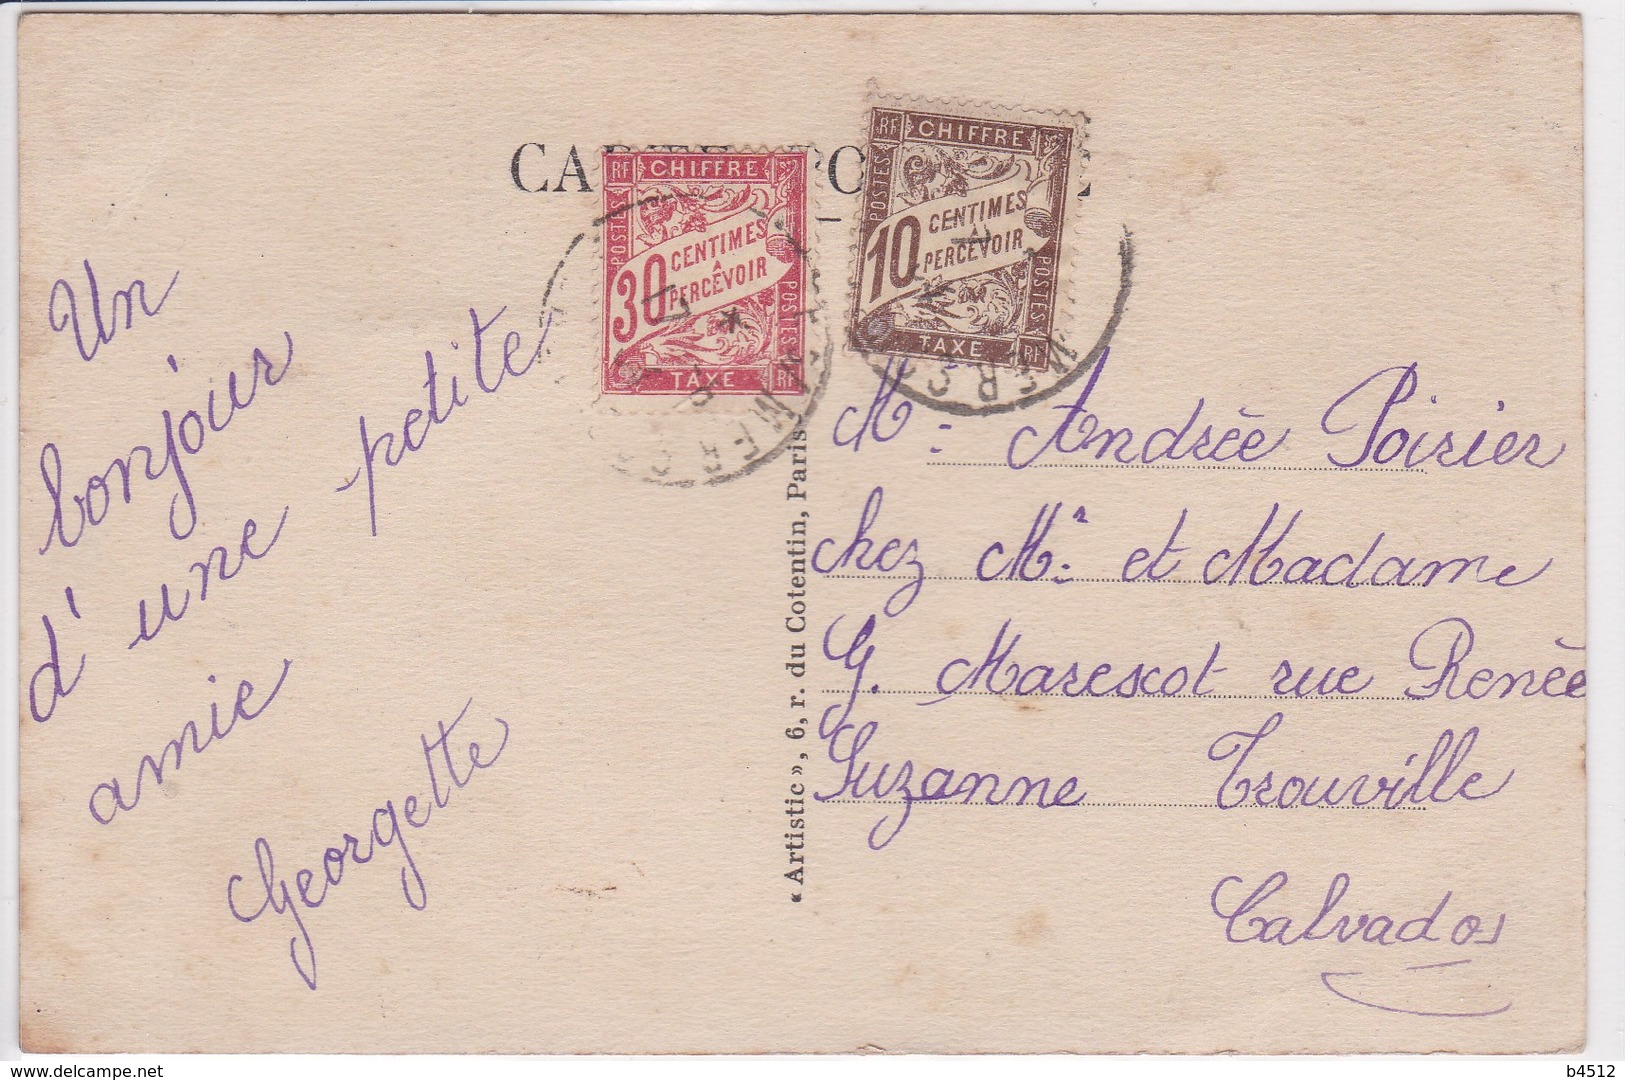 CARTE POSTALE
RF CHIFFRE
POSTES
30 CENTIMES
À
PERCEVOIR
POSTES
TAXE RF
RF CHIFFRE
POSTES
10 CENTIMES
À
PERCEVOIR
POSTES
TAXE RF
Un
bonjour
d'une petite
amie
Georgette
« Artistic », 6, r. du Cotentin, Paris
Mle Andrée Poirier
chez Mr et Madame
G. Marescot rue Renée
Suzanne Trouville
Calvados
delcampe.net
b4512